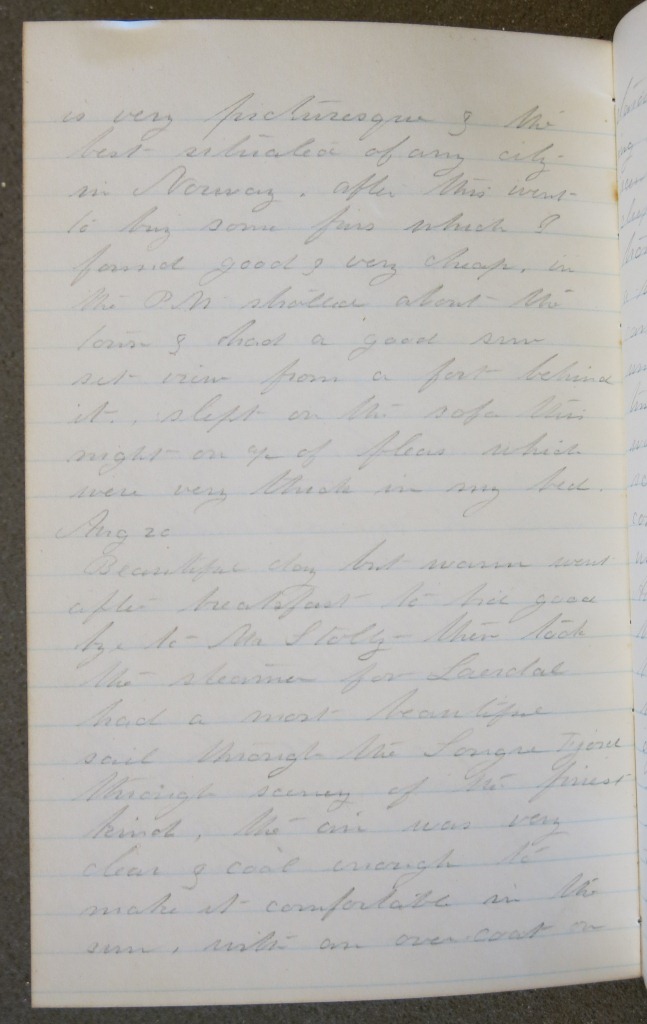 is very picturesque & the
best situated of any city
in Norway. after this went
to buy some furs which I
found good & very cheap. in
the PM strolled about the
town & had a good sun
set view from a fort behind
it. slept on the sofa this
night on % of fleas which
were very thick in my bed.
Aug 20
Beautiful day but warm went
after breakfast to bid good
by to Mr Stolly then took
the steamer for Laerdal
had a most beautiful
sail through the Songne Fjord
through scenery of the finest
kind, the air was very
clear & cool enough to
make it comfortable in the
sun, with an over coat on